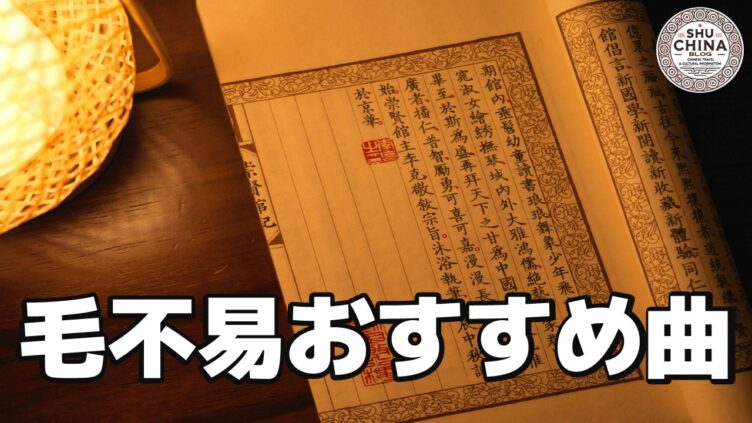 SHU
CHINA
BLOG
CHINESE TRAVEL
& CULTURAL INFORMATION
館倡言新國學新閱讀新收藏新體驗同仁
期館內垂髫幼童讀書琅琅舞象少年飛
窕淑女繪綉撫琴域內外大雅鴻儒絕
畢至於斯為盛再拜天下之甘為中國
廣者播仁普智勵勇可喜可嘉漫漫長
崇賢館主李克敬敘宗旨沐浴執筆
於京華
崇賢館記
毛不易おすすめ曲